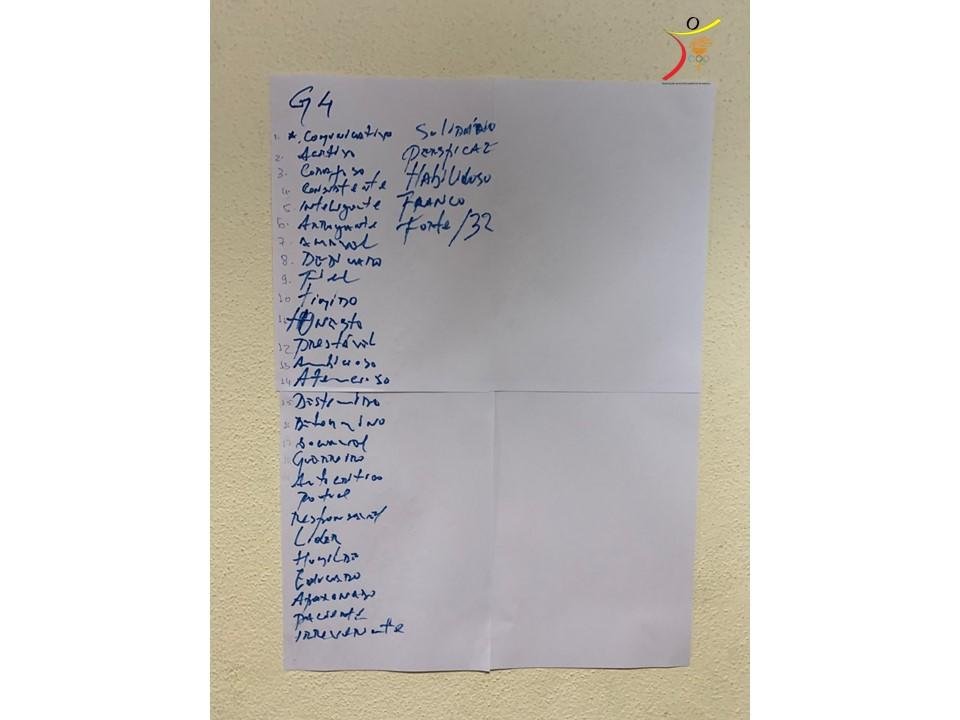 G4
1. *. Comunicativo
2. Activo
3.
4. Consistente
5 Inteligente
6. Arrogante
7. Amável
8. DEDICADO
9. Fiel
10 Timido
11 Honesto
12 prestável
13 Ambicioso
14 Atencioso
15 Destemido
16
17
18 Guerreiro
Autocritico
Pontual
Responsavel
Lider
Humilde
Educado
Apaixonado
paciente
irreverente
Solidário
PERSPICAZ
Habilidoso
FRANCO
Forte /32